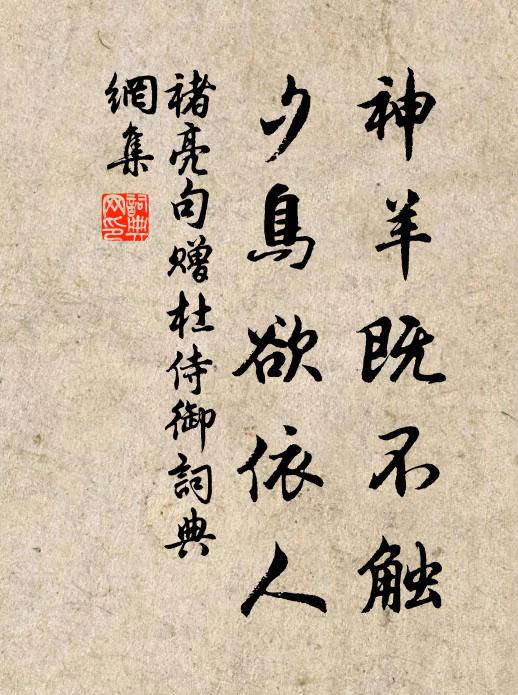 神羊既不触
夕鳥欲依人
褚亮句赠杜侍御詞典
網集
詞典网印